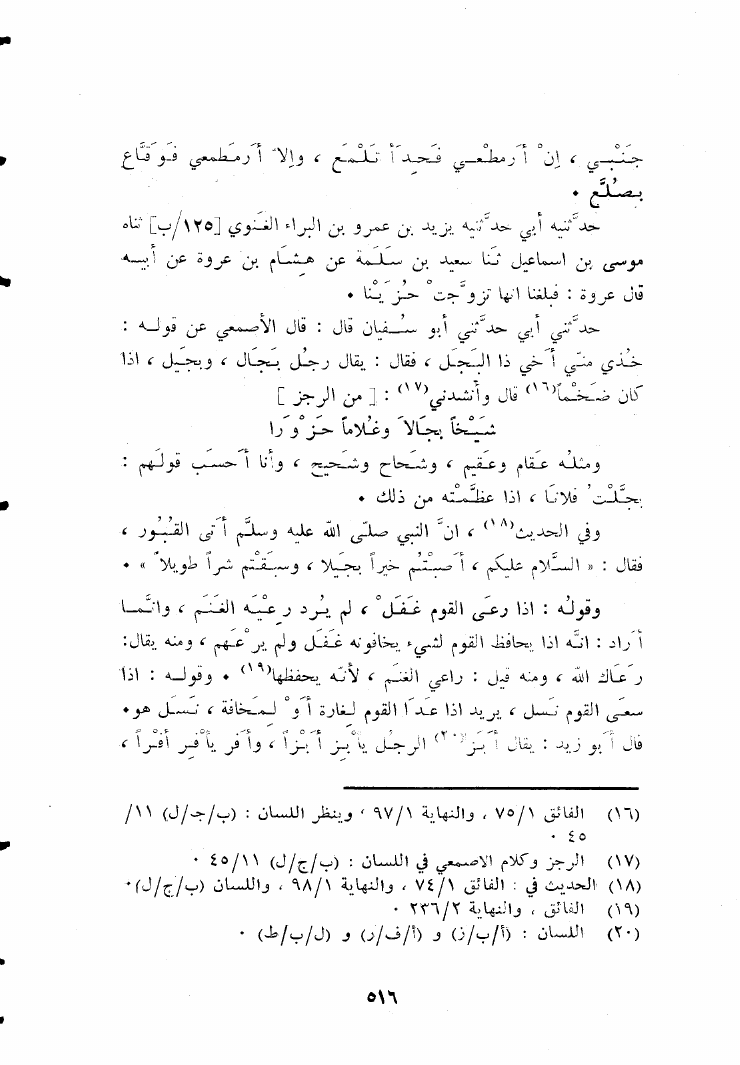 جَنْبي ، إِنْ أَرَ مطعمي فَحِدَأً تَلَمَّع ، وإلاّ أَرَ مطمعي فَوَقَّاع
بِصُلَّع .
حدَّثنيه أبي حدَّثنيه يزيد بن عمرو بن البراء الغَنوي [١٢٥/ب] ثناه
موسى بن اسماعيل ثَنا سعيد بن سَلَمة عن هِشَام بن عروة عن أبيه
قال عروة : فبلغنا انها تزوَّجتْ حُزَيْنا .
حدَّثني أبي حدَّثني أبو سُفيان قال : قال الأصمعي عن قوله :
خُذي منّي أَخي ذا البَجَل ، فقال : يقال رجُل بَجَال ، وبجَيل ، اذا
كان ضَخْماً(١٦) قال وأنشدني(١٧) : [ من الرجز ]
شَيْخاً بجَالاَ وغُلاماً حَزْوَرا
ومثلُه عَقام وعَقيم ، وشَحاح وشَحيح ، وأنا أَحسَب قولَهم :
بجَّلْتُ فلانا ، اذا عظَّمْته من ذلك .
وفي الحديث(١٨) ، انَّ النبي صلّى الله عليه وسلَّم أَتى القُبُور ،
فقال : « السَّلام عليكم ، أَصَبْتُم خيراً بجَيلا ، وسَبَقْتم شراً طويلاً » .
وقولُه : اذا رعَى القوم غَفَلْ ، لم يُرِد رِعيْه الغَنَم ، وانَّما
أَراد : انَّه اذا يحافظ القوم لشيء يخافونه غَفَل ولم يرْعَهم ، ومنه يقال:
رَعَاك الله ، ومنه قيل : راعي الغنَم ، لأنَّه يحفظها(١٩) . وقوله : اذا
سعَى القوم نَسَل ، يريد اذا عَدَا القوم لِغارة أَوْ لِمَخافة ، نَسَل هو.
قال أَبو زيد : يقال أَبَزَ(٢٠) الرجُل يأبِز أَبْزاً ، وأَفَر يأفِر أَفْراً ،
(١٦) الفائق ٧٥/١ ، والنهاية ٩٧/١ ، وينظر اللسان : (ب/ج/ل) ١١/
٤٥ .
(١٧) الرجز وكلام الاصمعي في اللسان : (ب/ج/ل) ٤٥/١١ .
(١٨) الحديث في : الفائق ٧٤/١ ، والنهاية ٩٨/١ ، واللسان (ب/ج/ل).
(١٩) الفائق ، والنهاية ٢٣٦/٢ .
(٢٠) اللسان : (أ/ب/ز) و (أ/ف/ر) و (ل/ب/ط) .
٥١٦